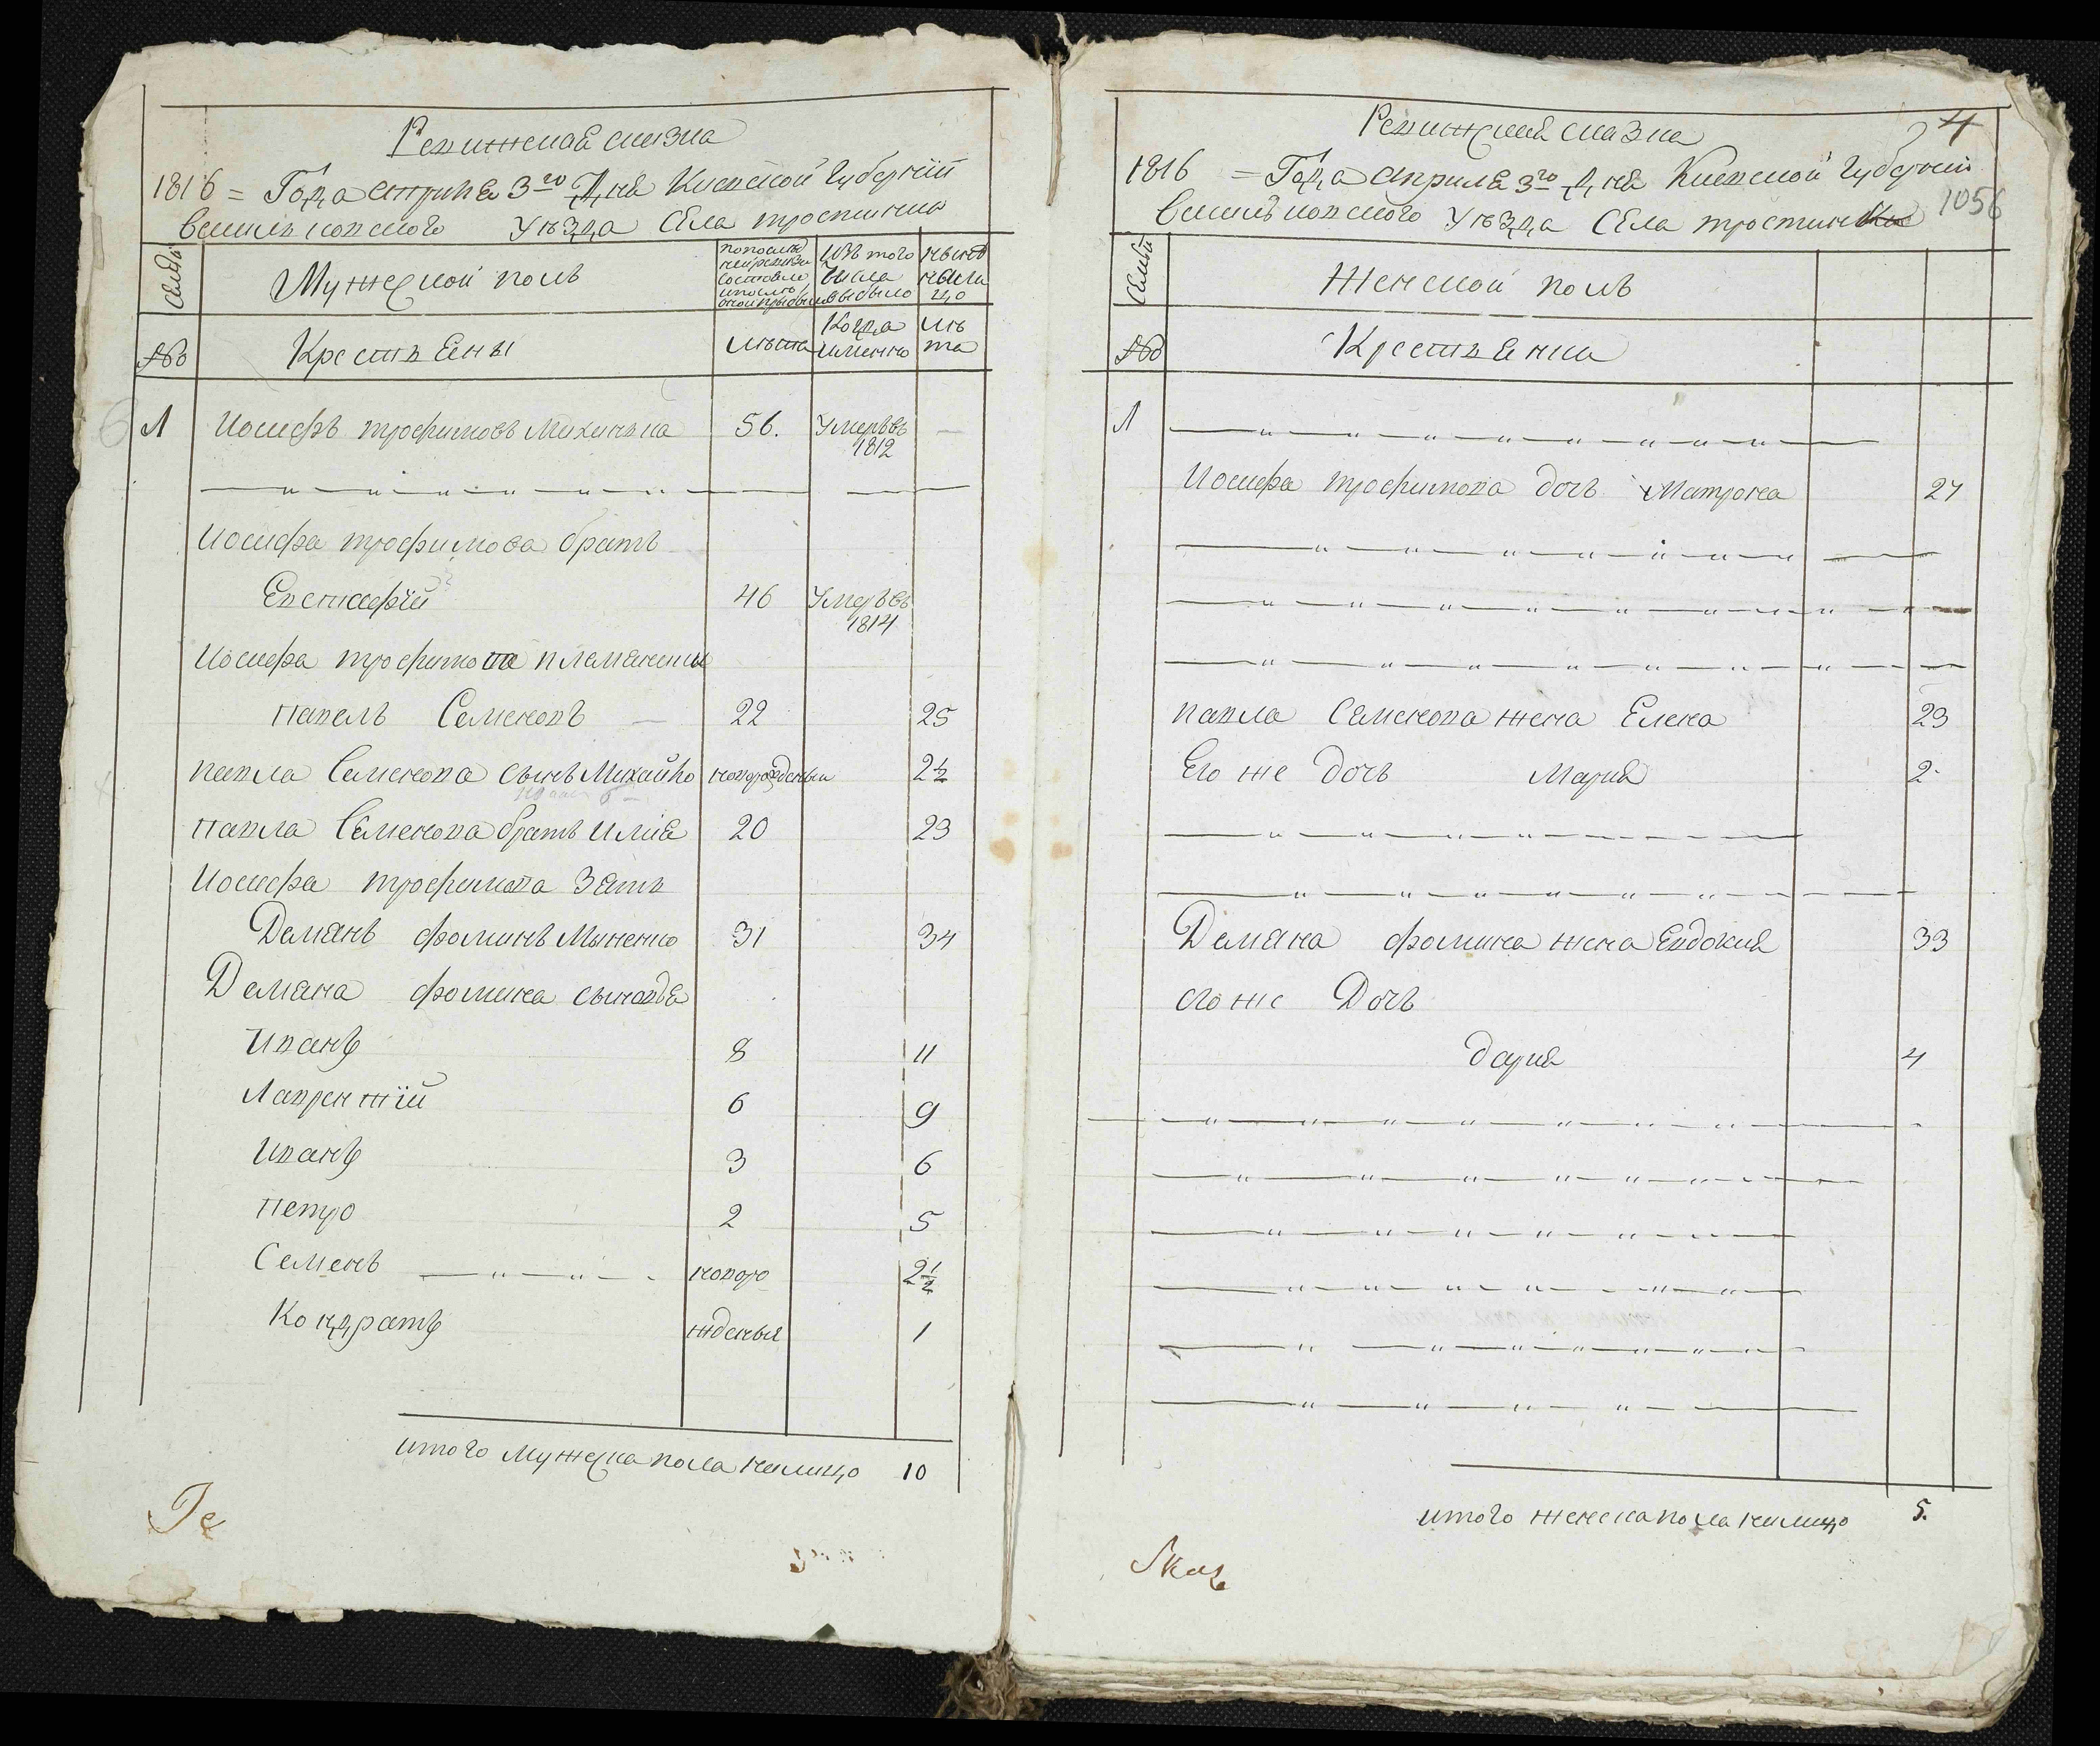 Ревижская сказка
1816 = Года априля 3го Дня Киевской губернїи
Васильковского Уезда Села тростинки
Семьи
Мужеской полъ
по последней ревизии состояло и после оной прибыло
Изъ того числа выбыло
ныне на лицо
№о
Крестьяны
лѣта
Когда именно
лѣта
1 Иосифъ трофимовъ Михинька 56. Умеръ въ 1812 —
Иосифа трофимова братъ
Евстафїй 46 Умеръ въ 1814
Иосифа трофимова племянники
павелъ Семеновъ — 22 25
павла Семенова сынъ Михайло новорожденный 2½
павла Семенова братъ Илия 20 23
Иосифа трофимова Зять
Демянъ фоминъ Мыненко 31 34
Демяна фомина сыновья
Иванъ 8 11
Лаврентїй 6 9
Иванъ 3 6
петро 2 5
Семенъ новоро 2½
Кондратъ жденыя 1
итого мужеска пола налицо 10
Ге
Ревижская сказка
4
1816 = Года априля 3го Дня Киевской губернии
1056
Васильковского Уезда Села тростинки
Семьи
Женской полъ
№о
Крестьянка
1
Иосифа трофимова дочь Матрона 27
павла Семенова жена Елена 23
Его же дочь Мария 2
Демяна фомина жена Евдокия 33
его же Дочь
дария 4
итого женска пола налицо 5.
Sкаг